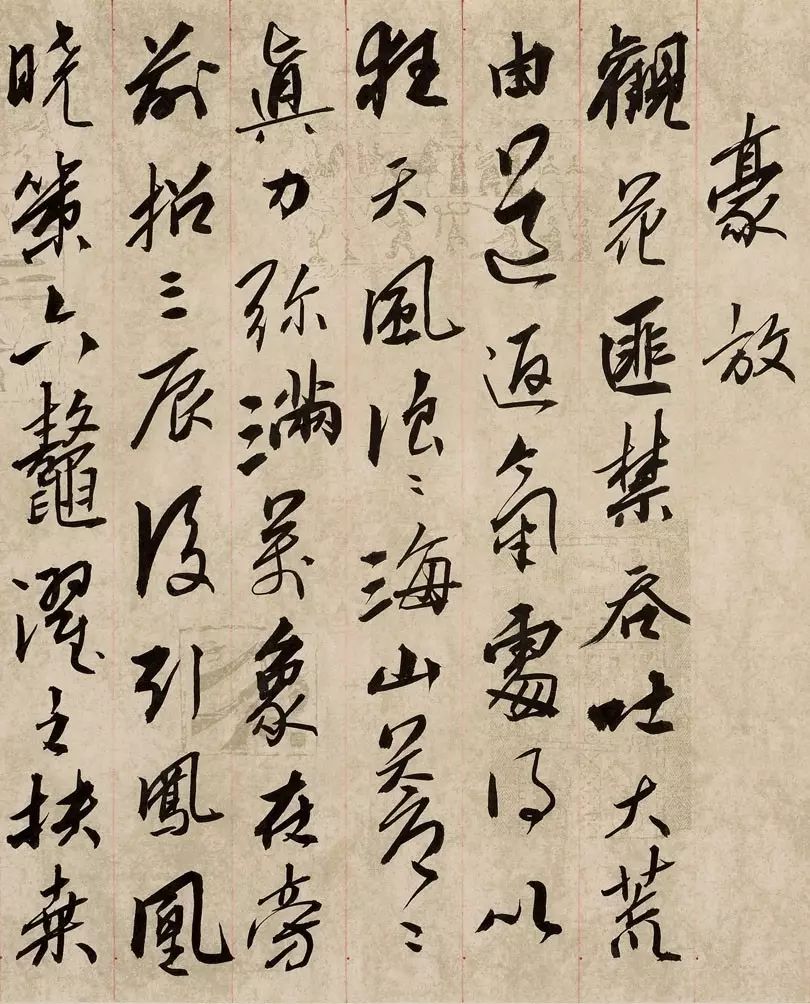 豪放
觀花匪禁吞吐大荒
由道返氣處得以
狂天風浪〻海山蒼〻
眞力弥滿萬象在旁
前招三辰後引鳳凰
曉策六鼇濯足扶桑